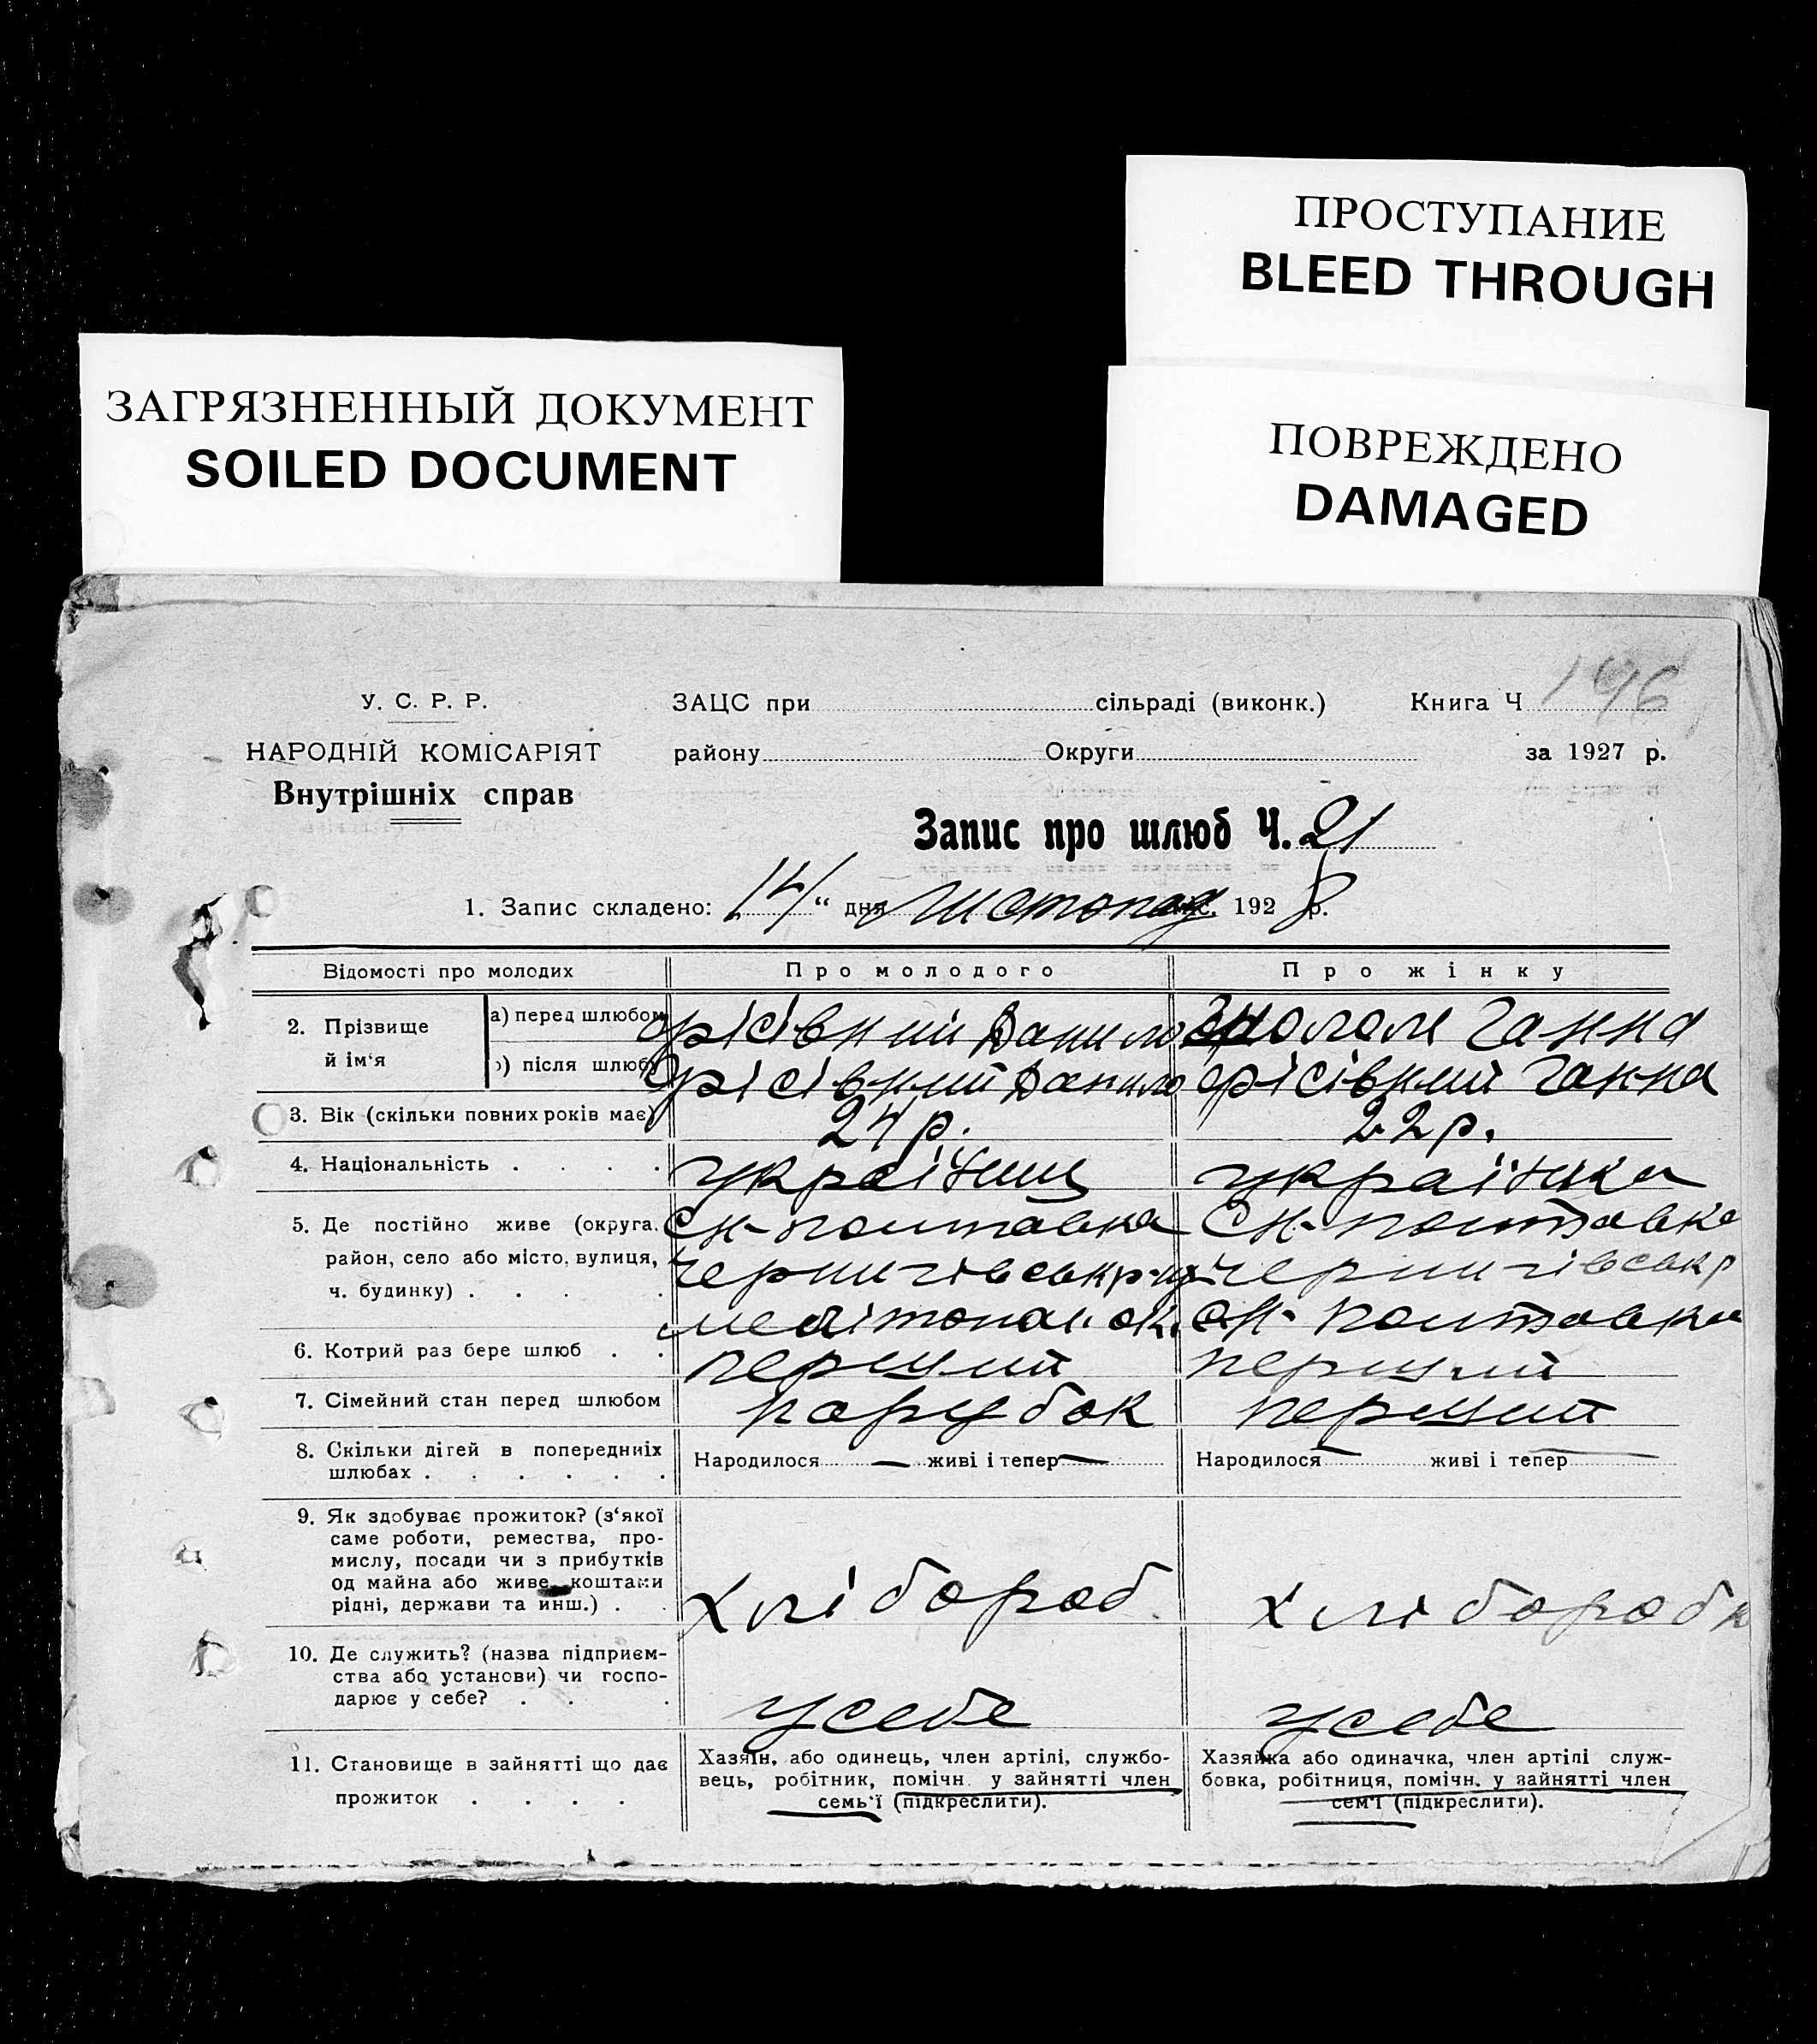 ПРОСТУПАНИЕ
BLEED THROUGH
ЗАГРЯЗНЕННЫЙ ДОКУМЕНТ
SOILED DOCUMENT
ПОВРЕЖДЕНО
DAMAGED
У. С. Р. Р.
НАРОДНІЙ КОМІСАРІЯТ
Внутрішніх справ
ЗАЦС при сільраді (виконк.) Книга Ч 146
району Округи за 1927 р.
Запис про шлюб Ч. 21
1. Запис складено: 14 “ дня листопад міс. 1928 р.
Відомості про молодих Про молодого Про жінку
2. Прізвище й ім‘я
а) перед шлюбом Данило Ганна
б) після шлюбу Данило Ганна
3. Вік (скільки повних років має) 24 р. 22 р.
4. Національність . . . . українец українка
5. Де постійно живе (округа, район, село або місто, вулиця, ч. будинку) . . . .
черниговськ р-н
мелітопол. ок.
6. Котрий раз бере шлюб . . перший перший
7. Сімейний стан перед шлюбом парубок перший
8. Скільки дітей в попередніх шлюбах . . . . . . Народилося — живі і тепер — Народилося — живі і тепер —
9. Як здобуває прожиток? (з‘якої
саме роботи, ремества, про-
мислу, посади чи з прибутків
од майна або живе коштами
рідні, держави та инш.) . .
хлібороб хлібороб
10. Де служить? (назва підприєм-
ства або установи) чи госпо-
дарює у себе? . . .
у себе у себе
11. Становище в зайнятті що дає
прожиток . . . .
Хазяїн, або одинець, член артілі, службо-
вець, робітник, помічн. у зайнятті член
семь‘ї (підкреслити).
Хазяйка або одиначка, член артілі служ-
бовка, робітниця, помічн. у зайнятті член
сем‘ї (підкреслити).